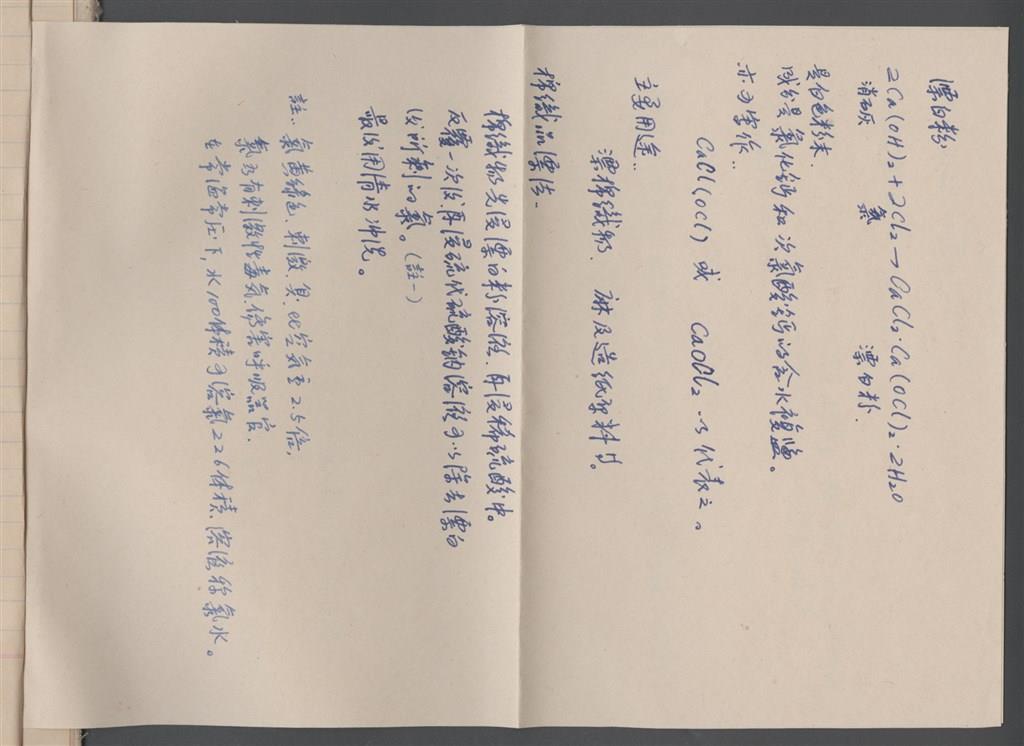 漂白粉:
2Ca(OH)₂+2Cl₂→CaCl₂·Ca(OCl)₂·2H₂O
消石灰 氯 漂白粉.
是白色粉末.
成分是氯化鈣和次氯酸鈣的含水複鹽。
亦可写作..
CaCl(OCl) 或 CaOCl₂ 以代表之。
主要用途..
漂棉織物. 麻及造紙原料等。
棉織品漂法.
棉織物先浸漂白粉溶液.再浸稀硫酸中。
反覆一次後再浸硫代硫酸鈉溶液可以除去漂白
後所剩的氯。(註一)
最後用清水冲洗。
註、氯黄綠色.刺激.臭.比空氣重2.5倍,
氯為有刺激性毒気.傷害呼吸器官.
在常温常圧下,水100体積可溶氯226体積.溶液称氯水。